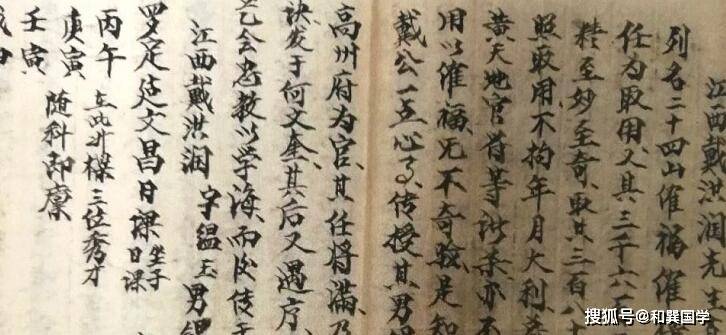 江西戴洪润先生
列名二十四山催福催
任为取用又其三千六
精至妙至奇取其三百八
照取用不拘年月大利
黄天地官符等诸杀亦不
用以催福无不奇验是知
戴公一心传授其男
高州府为官其任将满乃
诀发于何文奎其后又遇序
会忠教以学海而后传
江西戴洪润 字緼玉 男
罗定文昌日课 坐子日课
丙午 在此三位秀才
庚寅 随科即廪
壬寅
搜狐号@和巽国学